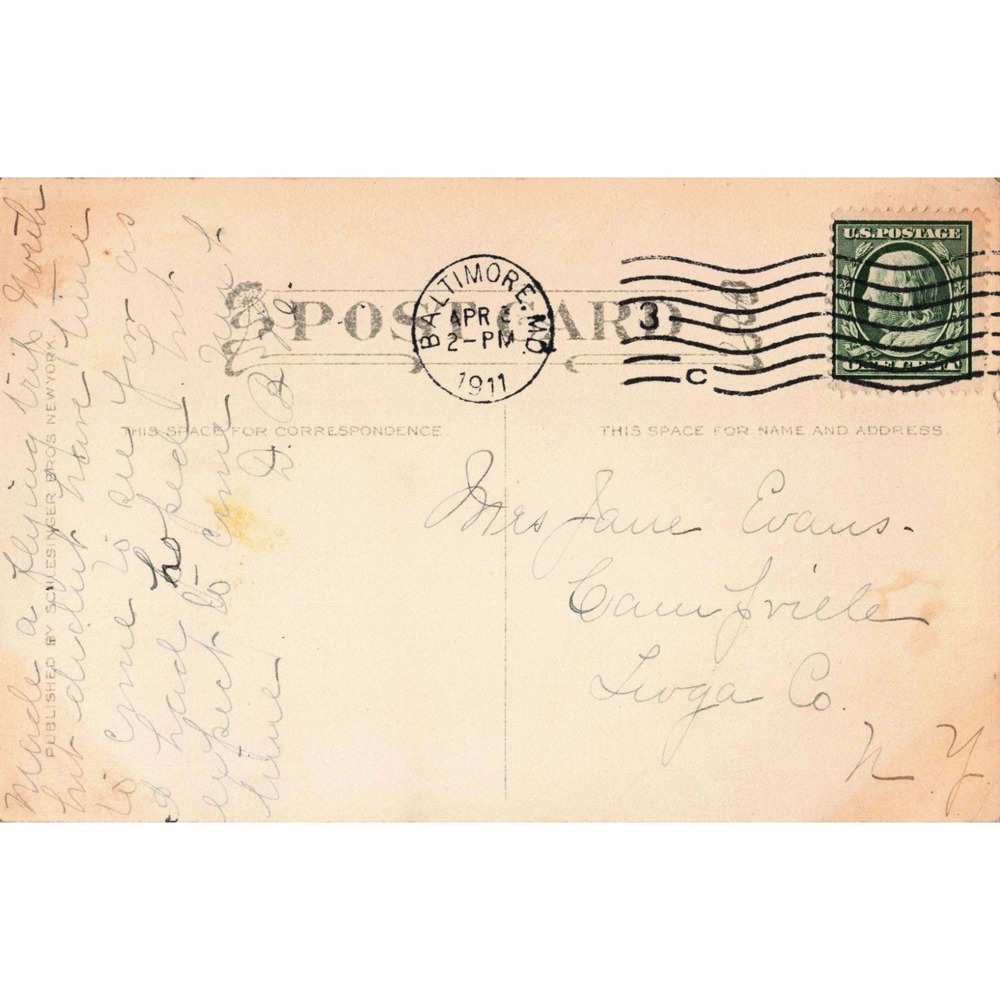 POST CARD
BALTIMORE, MD.
APR
2-PM
1911
3
C
U.S. POSTAGE
THIS SPACE FOR CORRESPONDENCE.
THIS SPACE FOR NAME AND ADDRESS.
PUBLISHED BY SCHLESINGER BROS NEW YORK.
Made a flying trip North
but didn't have time
to come to see you as
I had hoped but
expect to come next
time
D. B.
Mrs Jane Evans.
Tioga Co.
N Y